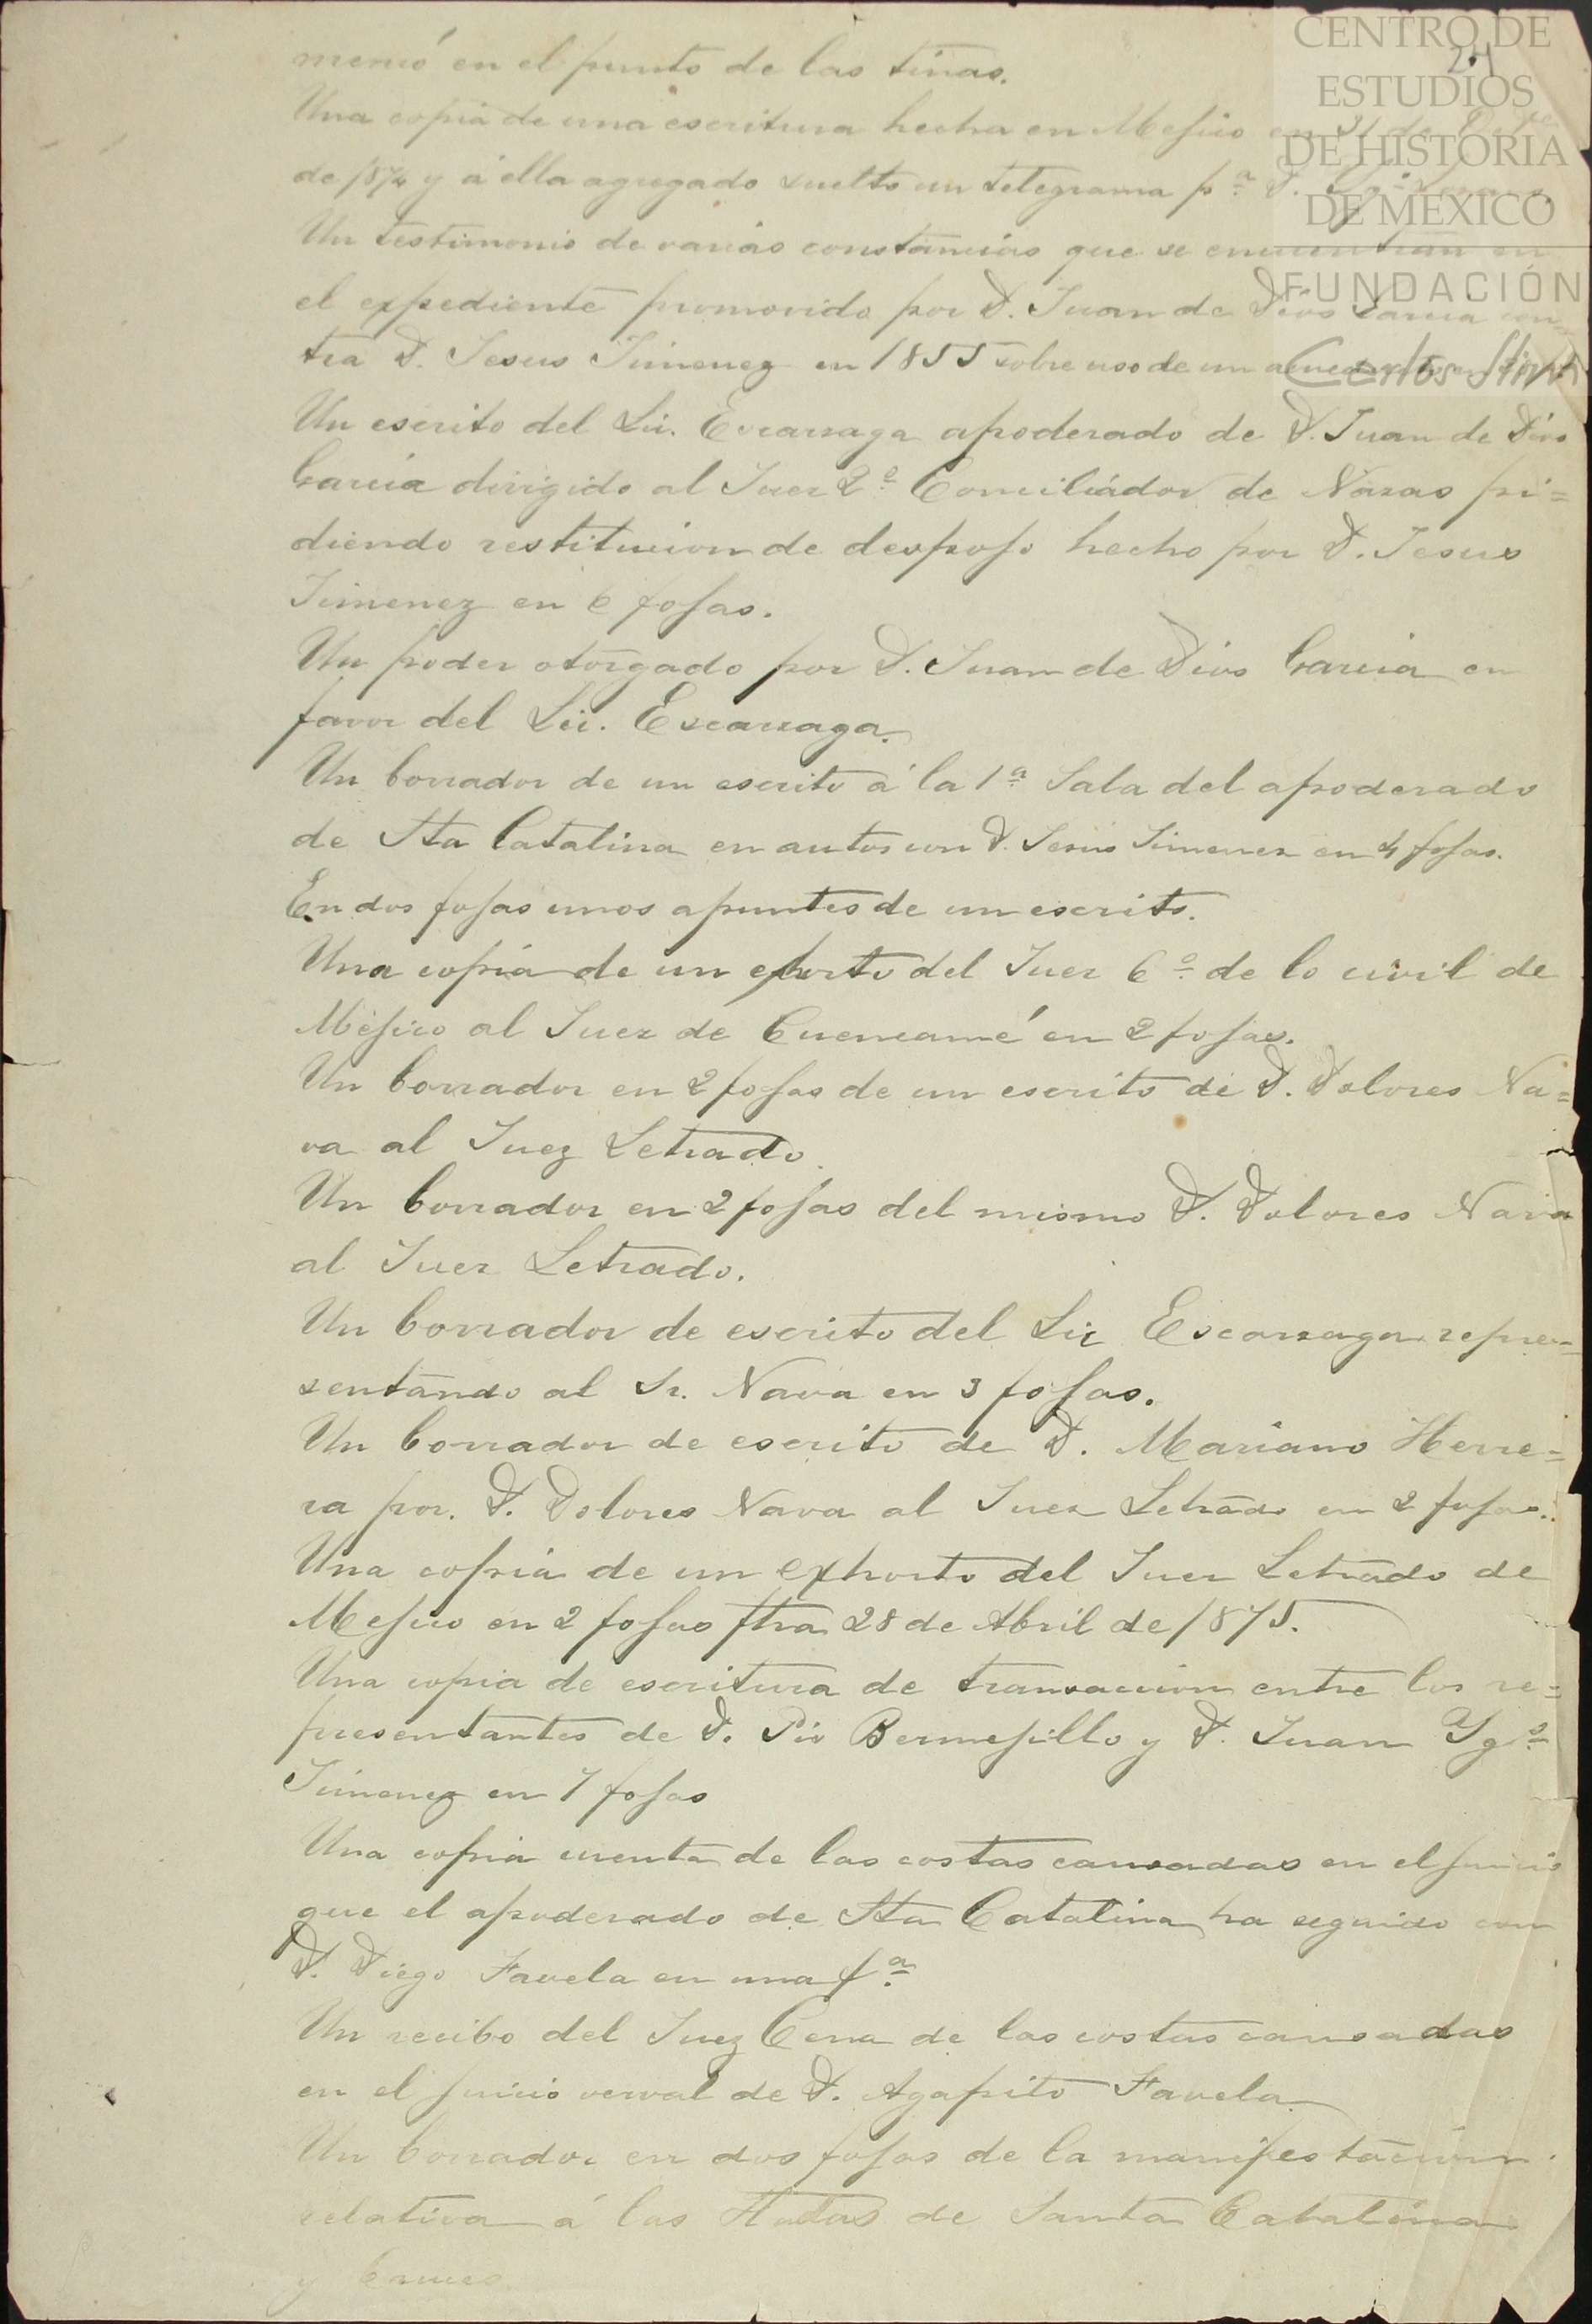 24
CENTRO DE
ESTUDIOS
DE HISTORIA
DE MEXICO
FUNDACIÓN
Carlos Slim
en el punto de las tinas.
Una copia de una escritura hecha en Mejico en 31 de
de 1874 y á ella agregado suelto un telegrama pª D.
Un testimonio de varias constancias que se encuentran en
el expediente promovido por D. Juan de Dios Garcia con=
tra D. Jesus Jimenez en 1855 sobre uso de un
Un escrito del Lic. Escarzaga apoderado de D. Juan de Dios
Garcia dirigido al Juez 2º Conciliador de Nazas pi=
diendo restitucion de despojo hecho por D. Jesus
Jimenez en 6 fojas.
Un poder otorgado por D. Juan de Dios Garcia en
favor del Lic. Escarzaga.
Un borrador de un escrito á la 1ª Sala del apoderado
de Sta Catalina en autos con D. Jesus Jimenez en 4 fojas.
En dos fojas unos apuntes de un escrito.
Una copia de un exhorto del Juez 6º de lo civil de
Mejico al Juez de Cuencamé en 2 fojas.
Un borrador en 2 fojas de un escrito de D. Dolores Na=
va al Juez Letrado.
Un borrador en 2 fojas del mismo D. Dolores Nava
al Juez Letrado.
Un borrador de escrito del Lic Escarzaga repre=
sentando al Sr. Nava en 3 fojas.
Un borrador de escrito de D. Mariano Herre=
ra por. D. Dolores Nava al Juez Letrado en 2 fojas.
Una copia de un exhorto del Juez Letrado de
Mejico en 2 fojas fha 28 de Abril de 1875.
Una copia de escritura de transaccion entre los re=
presentantes de D. Pio Bermejillo y D. Juan Ygº
Jimenez en 7 fojas
Una copia cuenta de las costas causadas en el juicio
que el apoderado de Sta Catalina ha seguido con
D. Diego Favela en una fª
Un recibo del Juez Cena de las costas causadas
en el juicio verval de D. Agapito Favela
Un borrador en dos fojas de la manifestacion
relativa á las de Santa Catalina
y